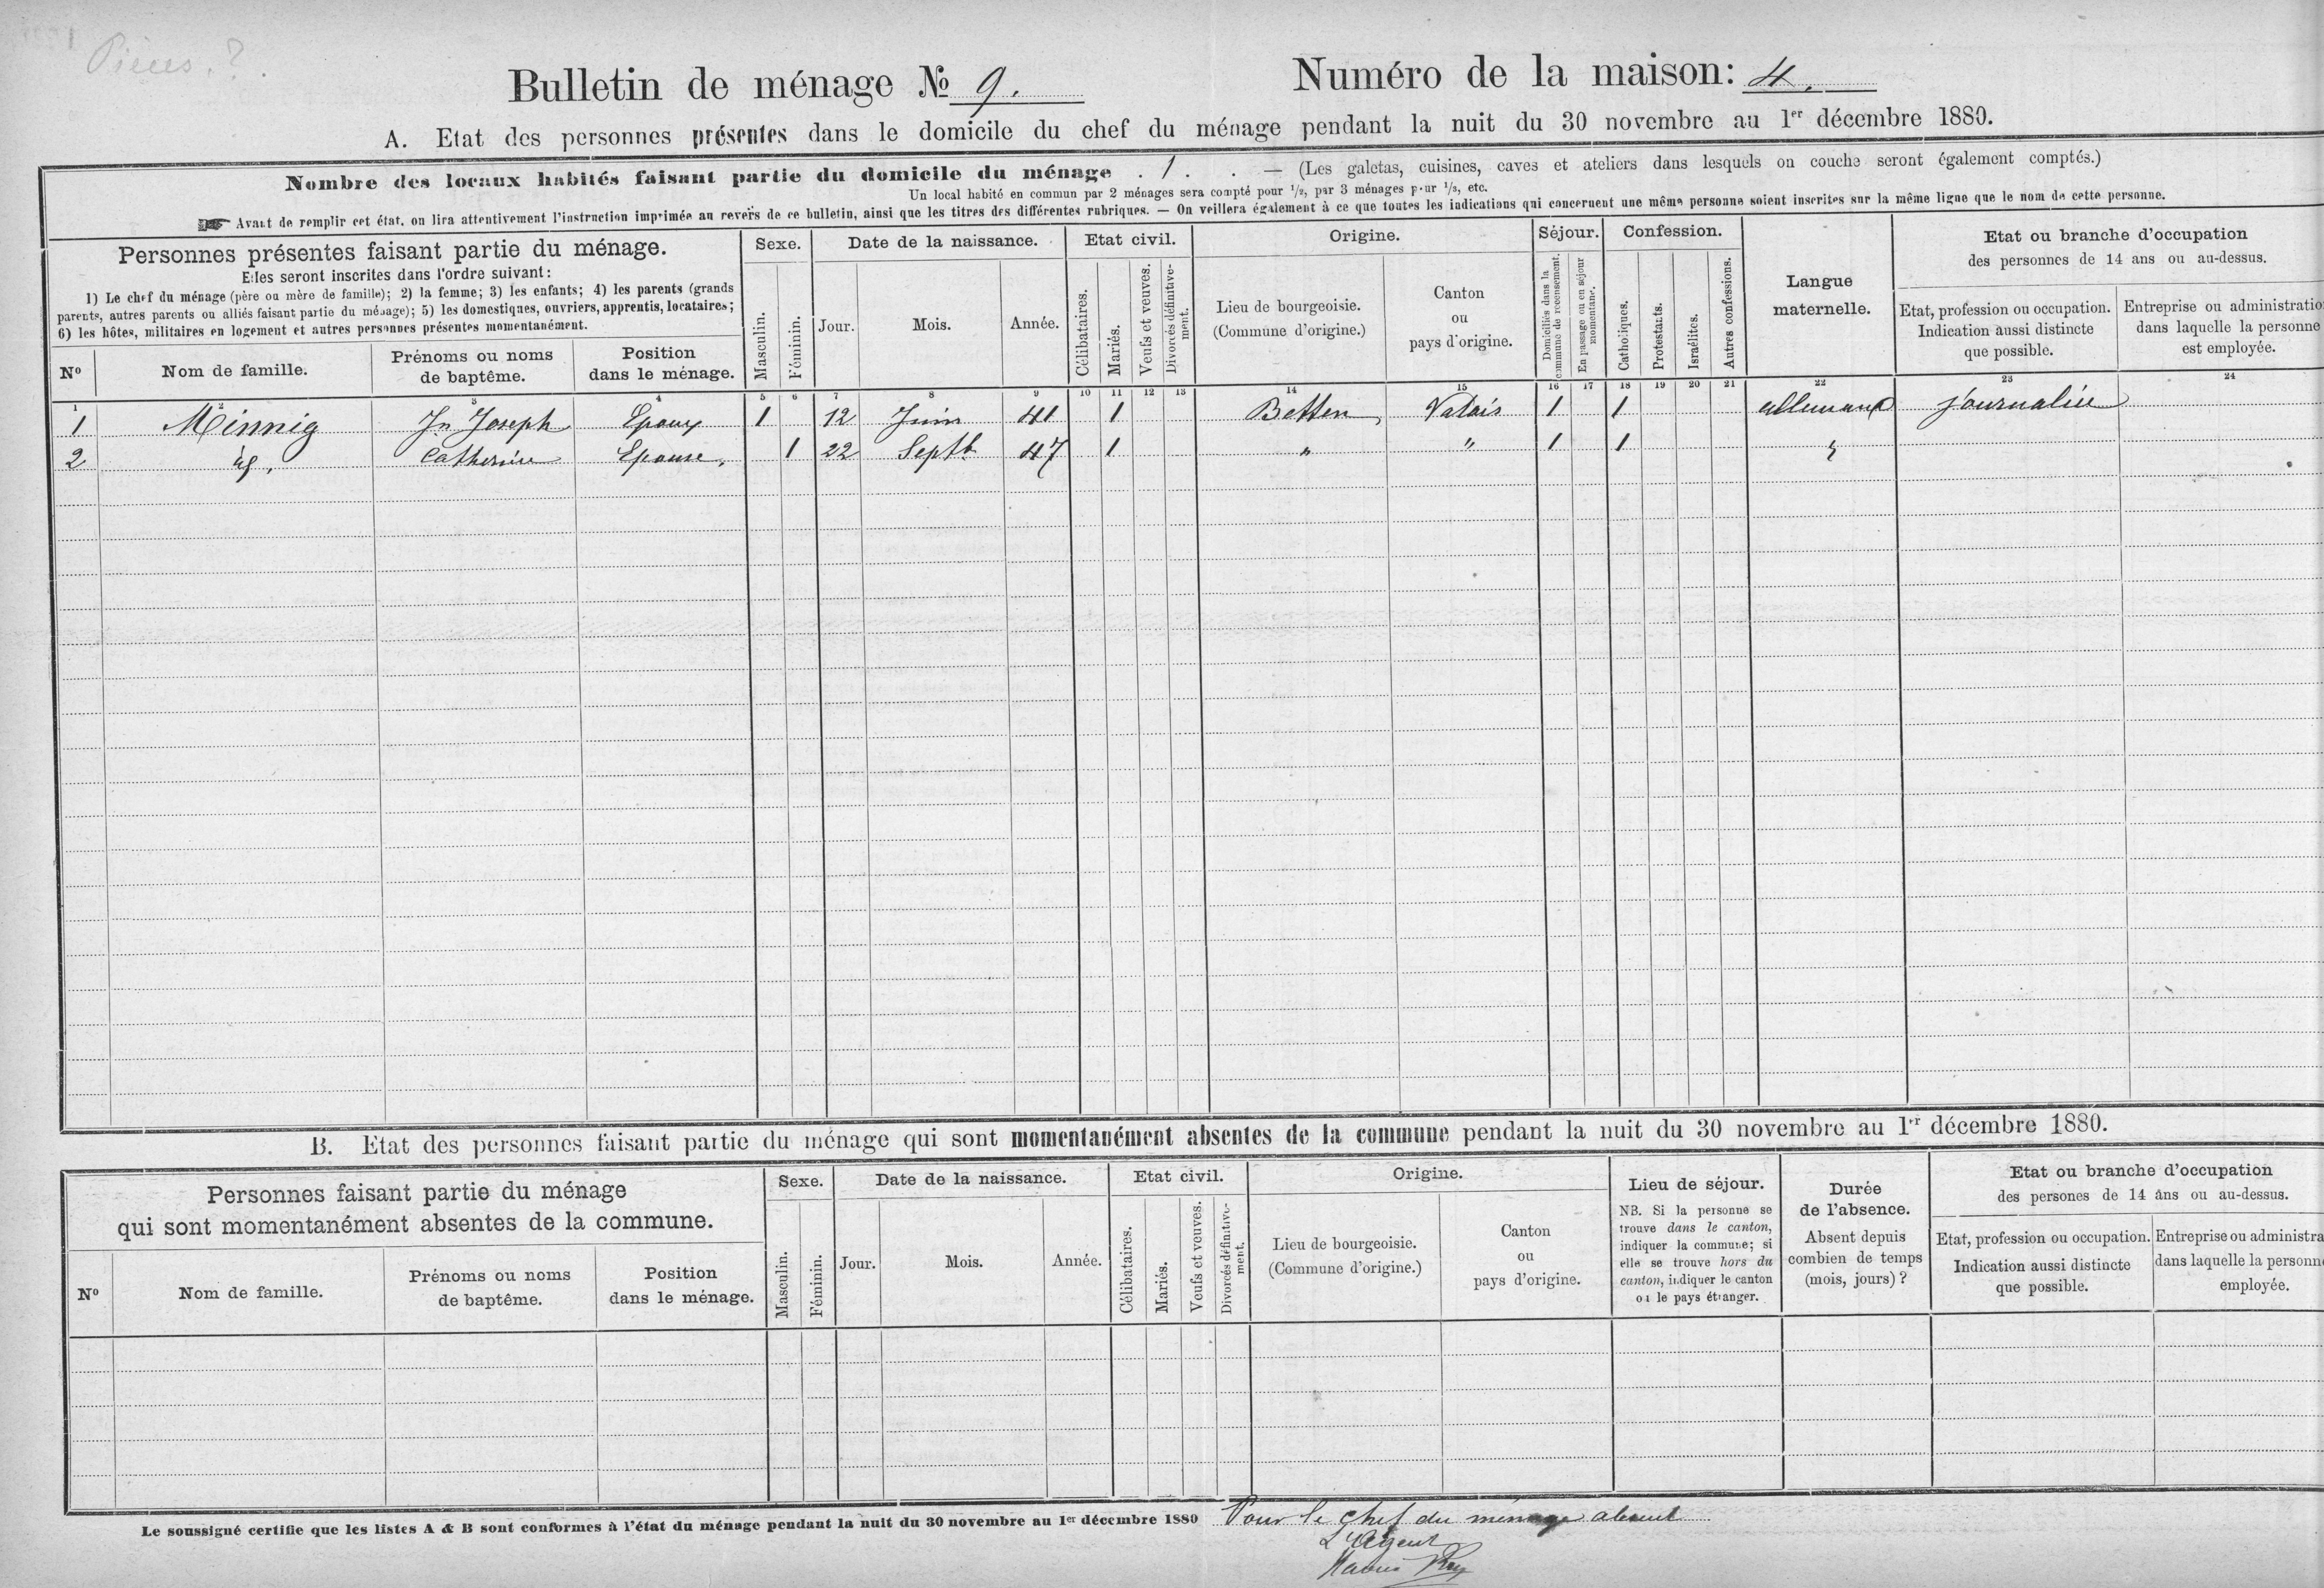 Pièces. ?
Bulletin de ménage No 9. Numéro de la maison: 4.
A. Etat des personnes présentes dans le domicile du chef du ménage pendant la nuit du 30 novembre au 1er décembre 1880.
Nombre des locaux habités faisant partie du domicile du ménage . 1 . . — (Les galetas, cuisines, caves et ateliers dans lesquels on couche seront également comptés.)
Un local habité en commun par 2 ménages sera compté pour 1/2, par 3 ménages pour 1/3, etc.
☞ Avant de remplir cet état, on lira attentivement l'instruction imprimée au revers de ce bulletin, ainsi que les titres des différentes rubriques. — On veillera également à ce que toutes les indications qui concernent une même personne soient inscrites sur la même ligne que le nom de cette personne.
Personnes présentes faisant partie du ménage.
Elles seront inscrites dans l'ordre suivant:
1) Le chef du ménage (père ou mère de famille); 2) la femme; 3) les enfants; 4) les parents (grands
parents, autres parents ou alliés faisant partie du ménage); 5) les domestiques, ouvriers, apprentis, locataires;
6) les hôtes, militaires en logement et autres personnes présentes momentanément.
No Nom de famille. Prénoms ou noms de baptême. Position dans le ménage.
Sexe. Masculin. Féminin.
Date de la naissance. Jour. Mois. Année.
Etat civil. Célibataires. Mariés. Veufs et veuves. Divorcés définitivement.
Origine. Lieu de bourgeoisie. (Commune d'origine.) Canton ou pays d'origine.
Séjour. Domiciliés dans la commune de recensement. En passage ou en séjour momentané.
Confession. Catholiques. Protestants. Israélites. Autres confessions.
Langue maternelle.
Etat ou branche d'occupation
des personnes de 14 ans ou au-dessus.
Etat, profession ou occupation. Indication aussi distincte que possible.
Entreprise ou administratio dans laquelle la personne est employée.
1 2 3 4 5 6 7 8 9 10 11 12 13 14 15 16 17 18 19 20 21 22 23 24
1 Minnig Jn Joseph Epoux 1 12 Juin 41 1 Betten Valais 1 1 allemand journalier
2 id. Catherine Epouse. 1 22 Septb 47 1 " " 1 1 "
B. Etat des personnes faisant partie du ménage qui sont momentanément absentes de la commune pendant la nuit du 30 novembre au 1er décembre 1880.
Personnes faisant partie du ménage
qui sont momentanément absentes de la commune.
No Nom de famille. Prénoms ou noms de baptême. Position dans le ménage.
Sexe. Masculin. Féminin.
Date de la naissance. Jour. Mois. Année.
Etat civil. Célibataires. Mariés. Veufs et veuves. Divorcés définitivement.
Origine. Lieu de bourgeoisie. (Commune d'origine.) Canton ou pays d'origine.
Lieu de séjour.
NB. Si la personne se
trouve dans le canton,
indiquer la commune; si
elle se trouve hors du
canton, indiquer le canton
ou le pays étranger.
Durée de l'absence.
Absent depuis combien de temps (mois, jours)?
Etat ou branche d'occupation
des persones de 14 ans ou au-dessus.
Etat, profession ou occupation. Indication aussi distincte que possible.
Entreprise ou administra dans laquelle la personn employée.
Le soussigné certifie que les listes A & B sont conformes à l'état du ménage pendant la nuit du 30 novembre au 1er décembre 1880 Pour le chef du ménage absent
L'Agent